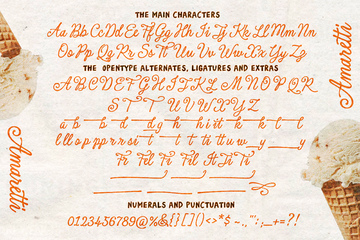 THE MAIN CHARACTERS
Aa Bb Cc Dd Ee Ff Gg Hh Ii Jj Kk Ll Mm Nn
Oo Pp Qq Rr Ss Tt Uu Vv Ww Xx Yy Zz
THE OPENTYPE ALTERNATES, LIGATURES AND EXTRAS
A B C D E F G H I J K L M N O P Q R
S T T U V W X Y Z
Fi Fil Fi Fil It Ti Ti
NUMERALS AND PUNCTUATION
Amaretti
Amaretti